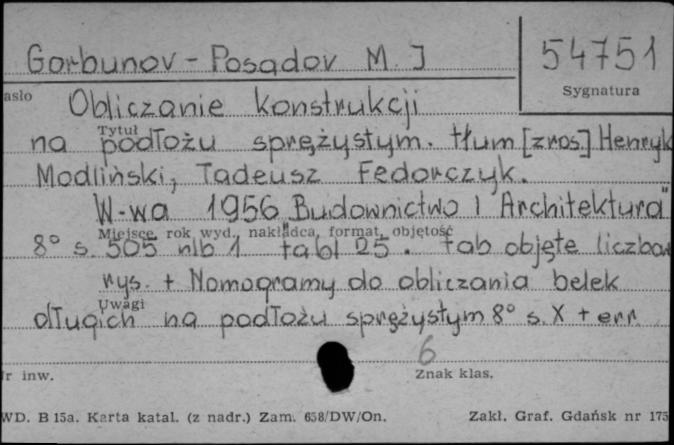 Gorbunov-Posadov M. J
54751
Sygnatura
asło
Obliczanie konstrukcji
Tytuł
na podłożu sprężystym. tłum [z ros.] Henryk
Modliński, Tadeusz Fedorczyk.
W-wa 1956 "Budownictwo i Architektura"
Miejsce, rok wyd., nakładca, format, objętość
8° s. 505 nlb 1 tabl 25. tab objęte liczbow
rys. + Nomogramy do obliczania belek
Uwagi
długich na podłożu sprężystym 8° s. X + err.
6
r inw.
Znak klas.
WD. B 15a. Karta katal. (z nadr.) Zam. 658/DW/On.
Zakł. Graf. Gdańsk nr 175